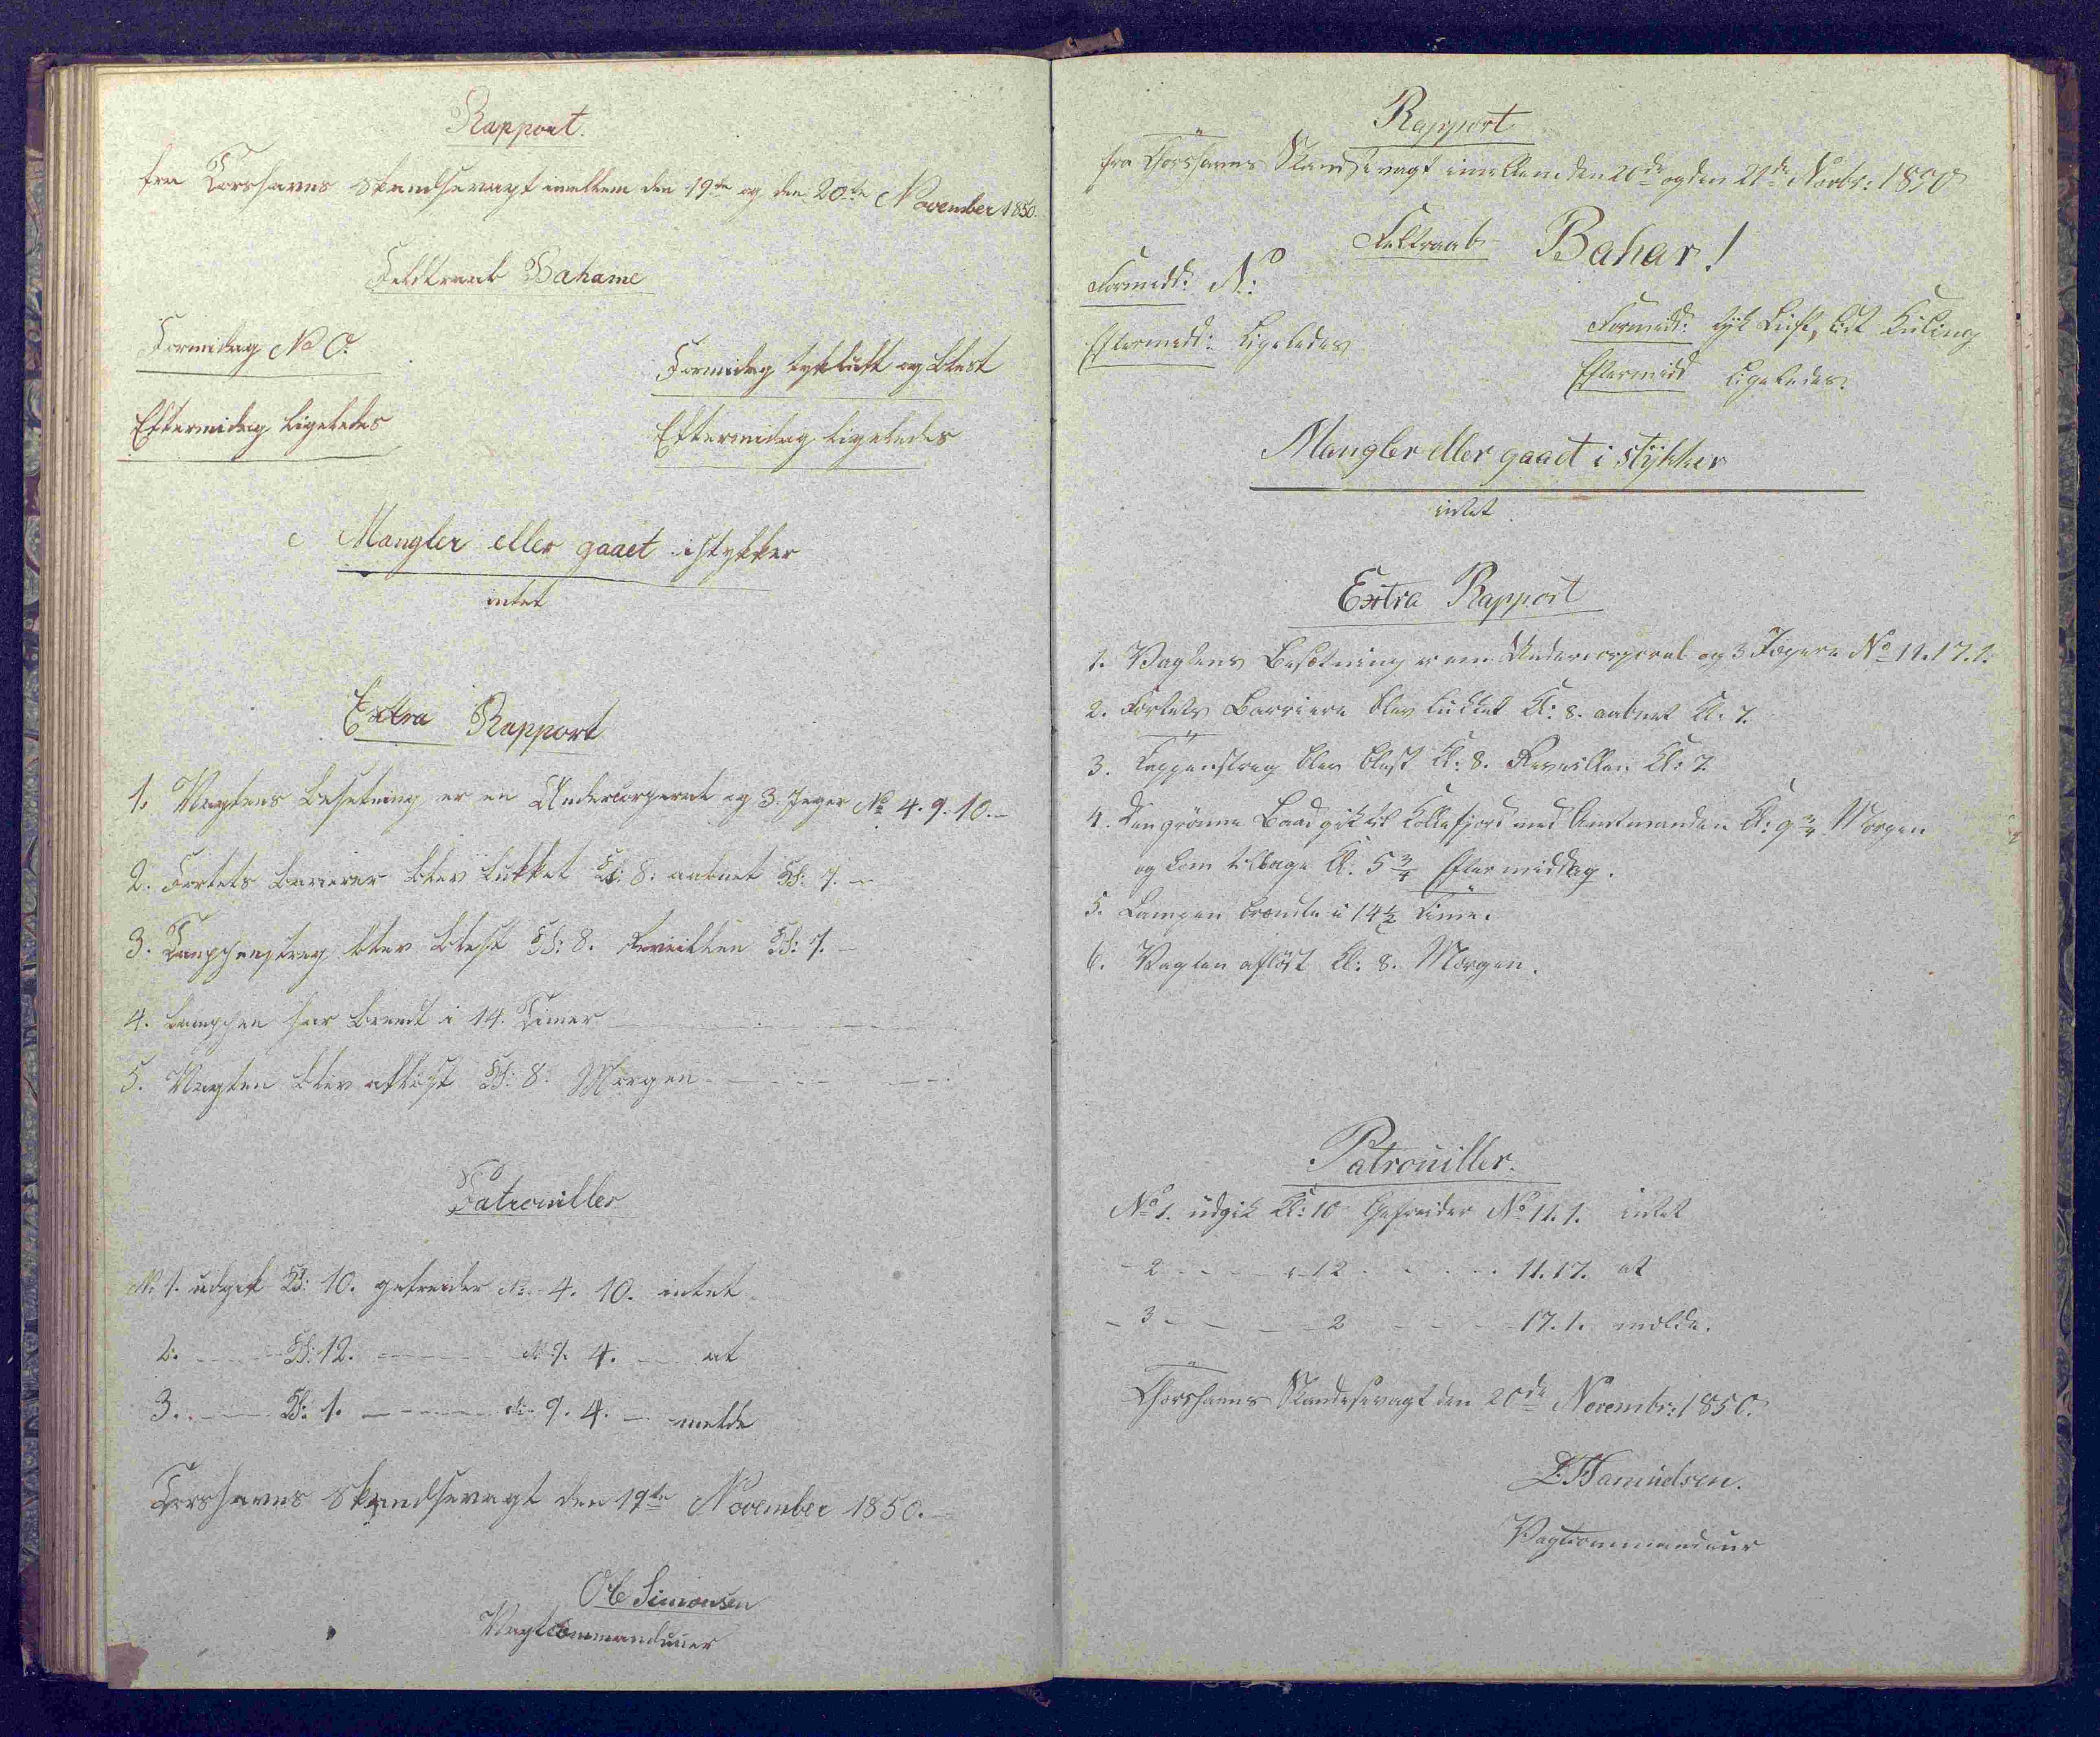 Rapport.
fra Torshavns Skandsevagt imellem den 19de og den 20de November 1850.
Feldtraab Bahame
Formidag No O.
Formidag tyk luft og blest
Eftermidag ligeledes
Eftermidag ligeledes
Mangler eller gaaet istykker
intet
Extra Rapport
1. Vagtens besetning er en Undercorporal og 3. Jeger No 4. 9. 10.
2. Fortets barierer blev lukket Kl: 8. aabnet Kl: 7.
3. Tappenstreg blev blest Kl: 8. Reveillen Kl: 7.
4. Lampen har brendt i 14. Timer
5. Vagten blev afløst Kl: 8. Morgen
Patrouiller
No 1. udgik Kl: 10. gefreider No 4. 10. intet
2. Kl: 12. 4. at
3. Kl: 1. 9. 4. melde
Torshavns Skandsevagt den 19de November 1850.
Ob Simonsen
Vagtcommandeuer
Rapport
fra Thorshavns Skandsevagt imellem den 20de og den 21de Novbr: 1850
Feltraab Bahar!
Formidd: N:
Formidd: tyk Luft, lidt Kuling
Eftermidd: ligeledes
Eftermidd ligeledes.
Mangler eller gaaet i stykker
intet
Extra Rapport
1. Vagtens Besætning er een Undercorporal og 3 Jægere No 11. 17. 1.
2. Fortets Barriere blev lukket Kl: 8. aabnet Kl. 7.
3. Tappenstreg blev blæst Kl: 8. Reveillen Kl: 7.
4. Den grønne Baad gik til Kollefjord med Amtmanden Kl: 9 Morgen
og kom tilbage Kl. 5 3/4 Eftermiddag.
5. Lampen brændte i 14 1/2 Time.
6. Vagten afløst Kl: 8. Morgen.
Patrouiller.
No 1. udgik Kl: 10 Gefreider No 11. 1. intet
- 2 - - - 12 - - - 11. 17. at
- 3 - - - 2 - - - 17. 1. melde.
Thorshavns Skandsevagt den 20de Novembr: 1850.
Samuelsen.
Vagtcommandeur